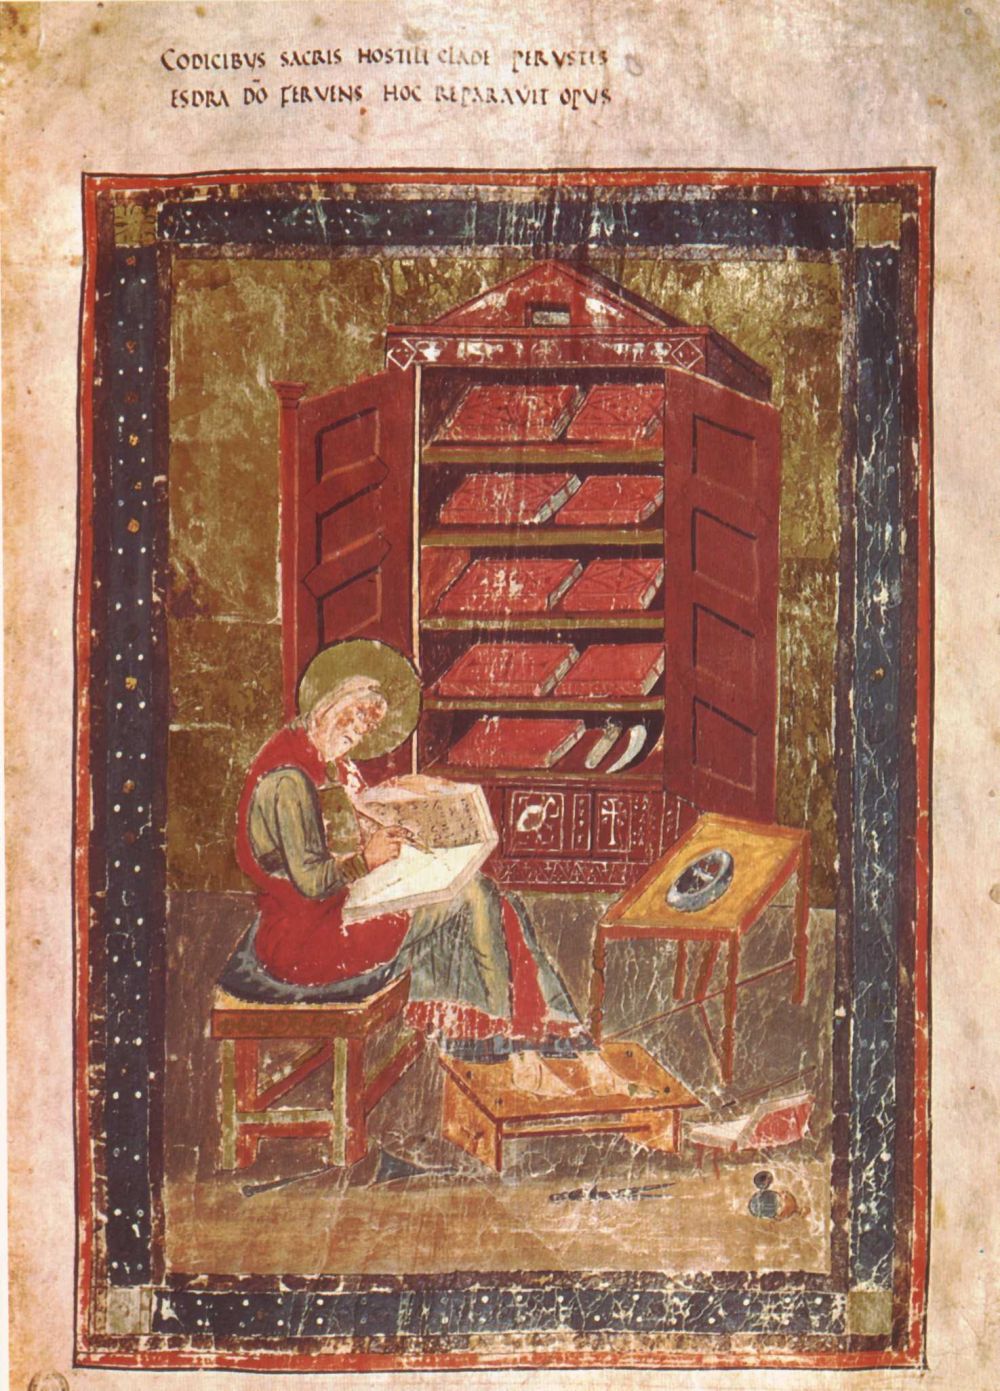 CODICIBVS SACRIS HOSTILI CLADE PERVSTIS
ESDRA D̄Ō FERVENS HOC REPARAVIT OPVS